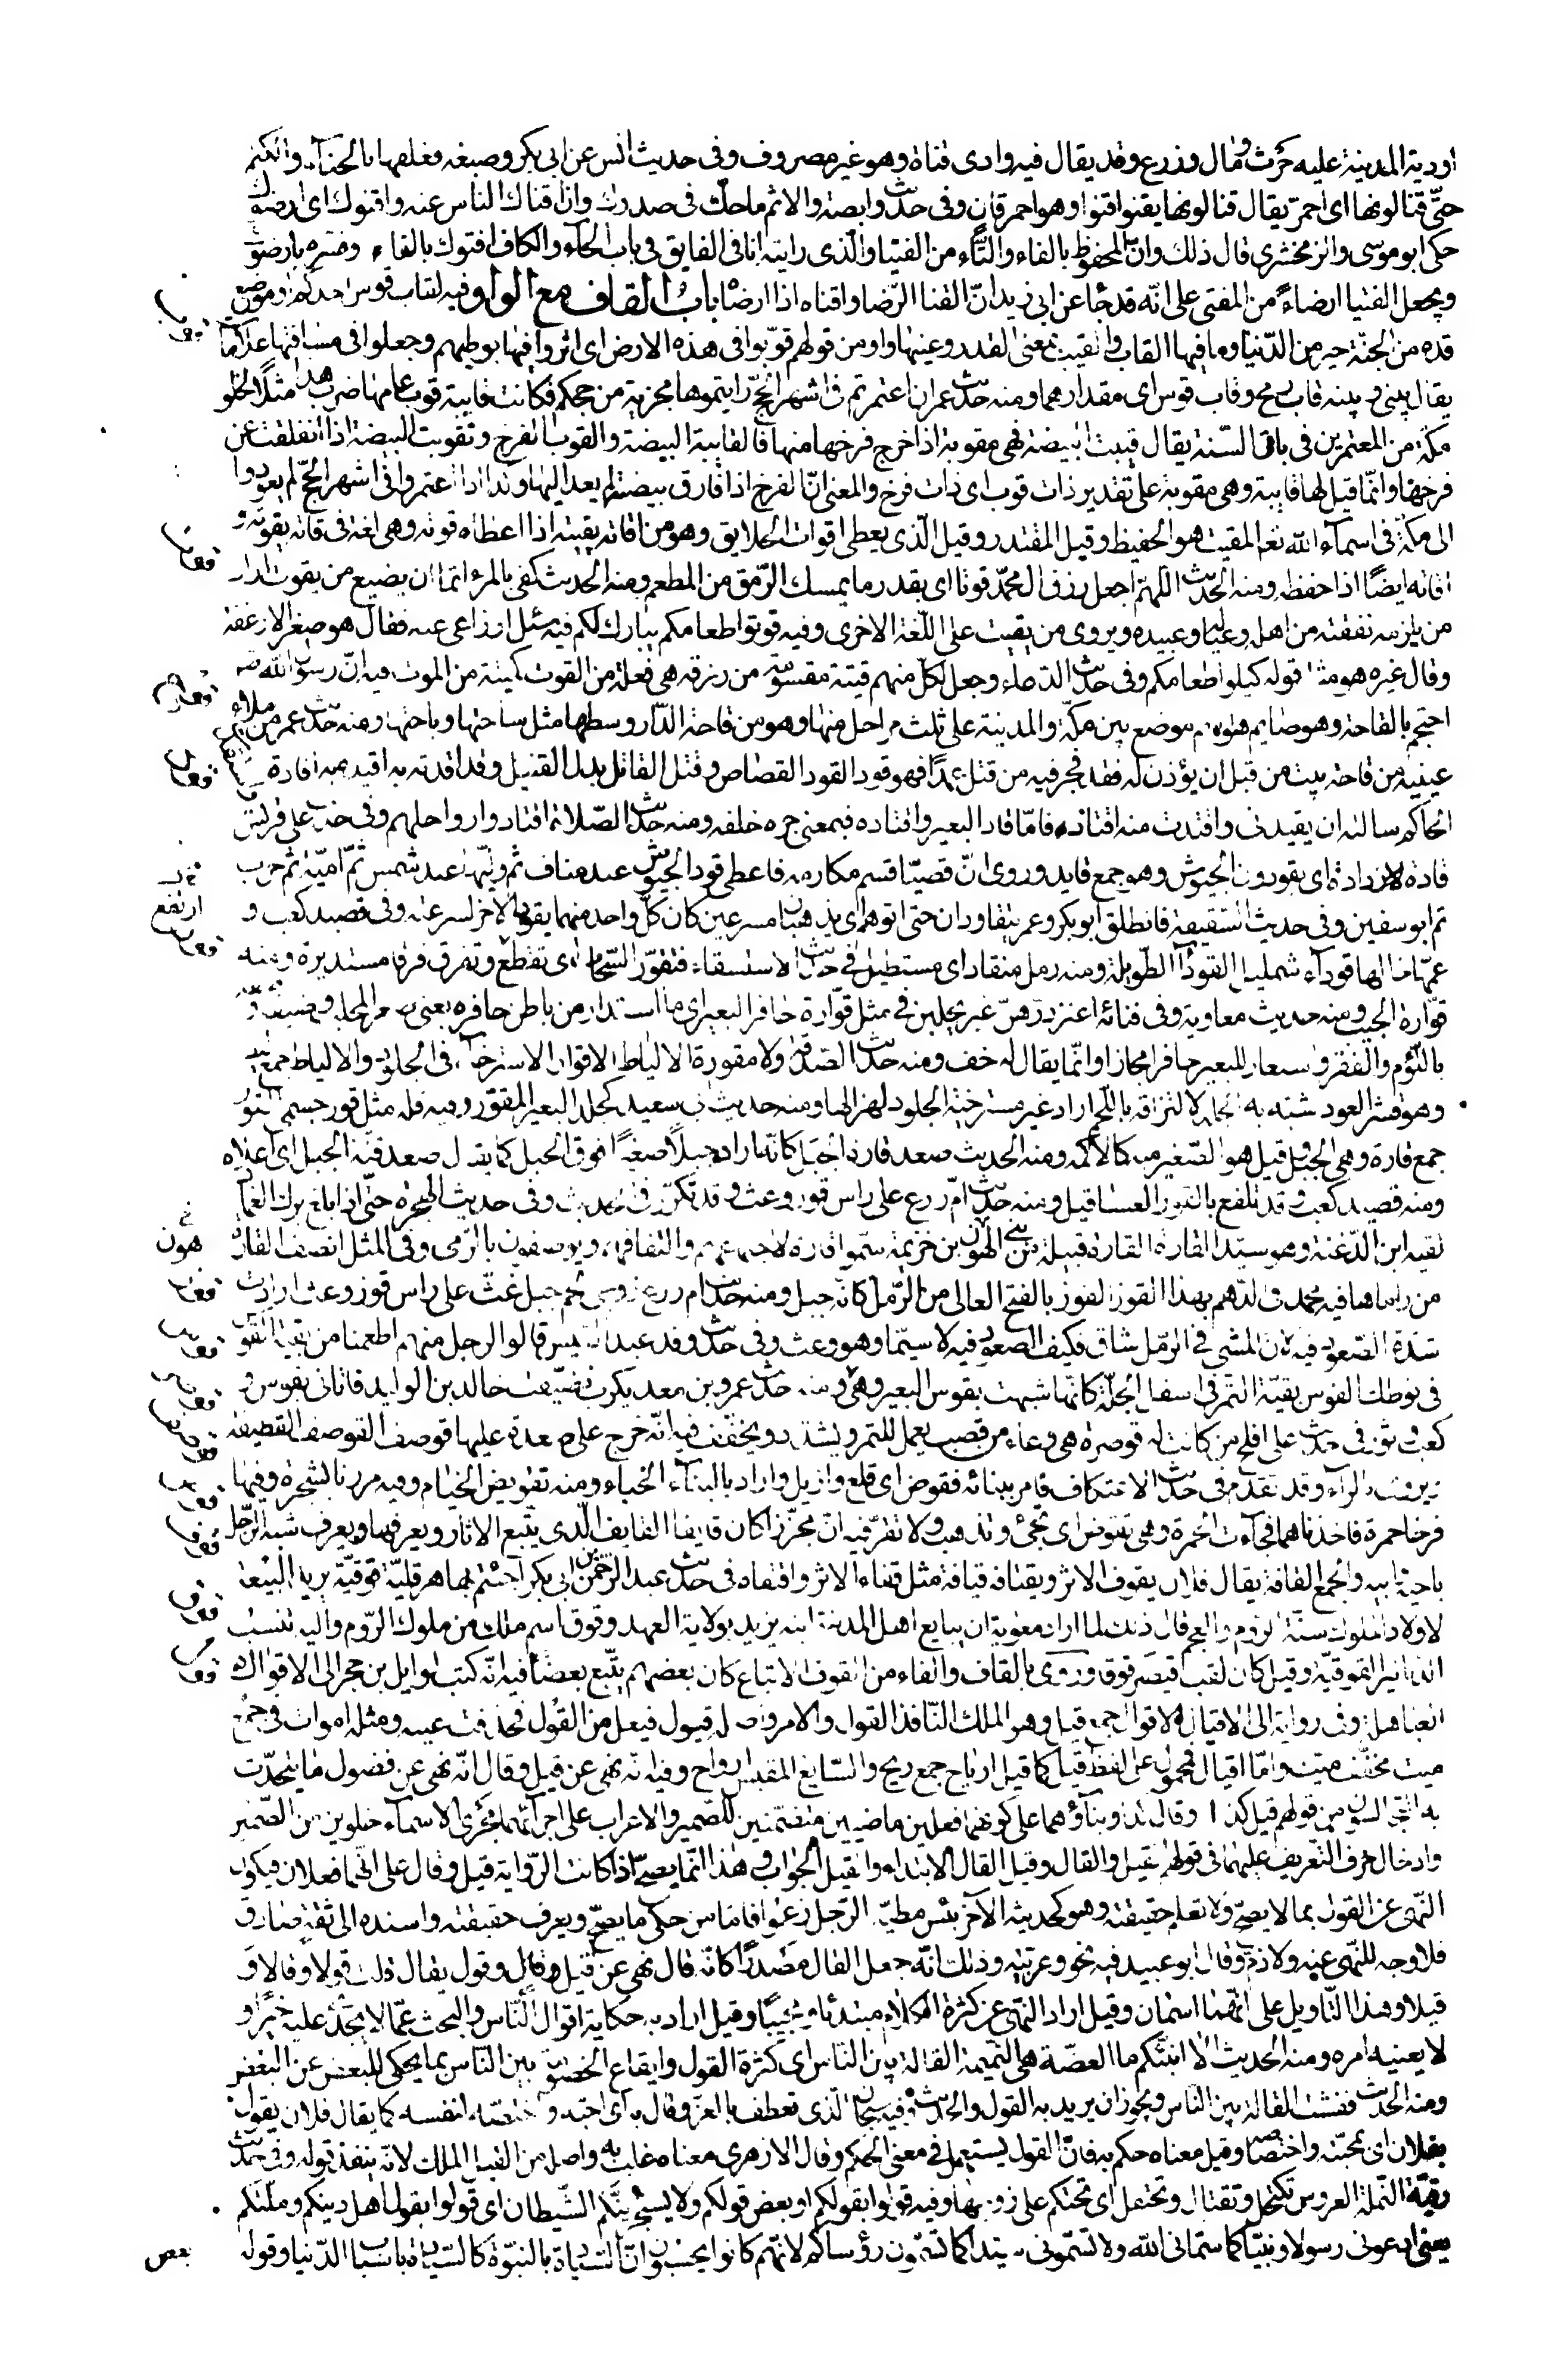 اودية المدينة عليه حرث ومال وزرع وقد يقال فيه وادى قناة وهو غير مصروف وفى حديث انس عن ابى بكر وصبغه فغلفها بالحناء والكتم
حتّى قنا لونها اى احمرّ يقال قنا لونها يقنو اقنوا وهو احمر قان وفى حديث وابصة والاثم ما حكّ فى صدرك وان اقناك الناس عنه واقنوك اى ارضوك
حكى ابو موسى والزمخشرى قال ذلك وانّ المحفوظ بالفاء والتّاء من الفتيا والّذى رايته انا فى الفايق فى باب الحاء والكاف افتوك بالفاء وفسّره بارضوك
ويجعل الفتيا ارضاءً من المفتى على انّه قد جاء عن ابى زيد انّ القنا الرّضا واقناه اذا ارضاه باب القاف مع الواو وفيه لقاب قوس احدكم او موضع
قده من الجنّة خير من الدّنيا وما فيها القاب والقيب بمعنى القدر وعينها واو من قولهم قوّبوا فى هذه الارض اى اثروا فيها بوطيهم وجعلوا فى مسافتها علامات
يقال بينى وبينه قاب رمح وقاب قوس اى مقدارهما ومنه حديث عمر ان اعتمرتم فى اشهر الحجّ رايتموها مجزية من حجكم فكانت قايبة قوب عامها ضرب هذا مثلًا لخلو
مكّة من المعتمرين فى باقى السّنة يقال قيبت البيضة فهى مقوبة اذا خرج فرخها منها فالقايبة البيضة والقوب الفرخ وتقوبت البيضة اذا انفلقت عن
فرخها وانّما قيل لها قايبة وهى مقوبة على تقدير ذات قوب اى ذات فرخ والمعنى انّ الفرخ اذا فارق بيضته لم يعد اليها وكذا اذا اعتمروا فى اشهر الحجّ لم يعودوا
الى مكّة فى اسماء الله تعالى المقيت هو الحفيظ وقيل المقتدر وقيل الّذى يعطى اقوات الخلايق وهو من اقاته يقيته اذا اعطاه قوته وهى لغة فى قاته يقوته و
اقاته ايضًا اذا حفظه ومنه الحديث اللّهمّ اجعل رزق ال محمّد قوتا اى بقدر ما يمسك الرّمق من المطعم ومنه الحديث كفى بالمرء اثما ان يضيع من يقوت اراد
من يلزمه نفقته من اهله وعياله وعبيده ويروى من يقيت على اللّغة الاخرى وفيه قوتوا طعامكم يبارك لكم فيه سئل الاوزاعى عنه فقال هو صغر الارغفة
وقال غيره هو مثل قوله كيلوا طعامكم وفى حديث الدّعاء وجعل لكلّ منهم قيتة مقسومة من رزقه هى فعلة من القوت كميتة من الموت فيه انّ رسول الله
احتجم بالقاحة وهو صايم هو اسم موضع بين مكّة والمدينة على ثلث مراحل منها وهو من قاحة الدّار وسطها مثل ساحتها وباحتها ومنه حديث عمر من ملاء
عينيه من قاحة بيت من قبل ان يؤذن له فقد فجر فيه من قتل عمدًا فهو قود القود القصاص وقتل القاتل بدل القتيل وقد اقدته به اقيده اقادة
الحاكم سالته ان يقيدنى واقتدت منه اقتاده فامّا قاد البعير واقتاده فبمعنى جره خلفه ومنه حديث الصّلاة اقتادوا رواحلهم وفى حديث على قريش
قادة ذادة اى يقودون الجيوش وهو جمع قايد وروى انّ قصيّا قسم مكارمه فاعطى قود الجيوش عبد مناف ثم وليها عبد شمس ثمّ اميّة ثم حرب
ثم ابو سفين وفى حديث السّقيفة فانطلق ابو بكر وعمر يتقاودان حتى اتوهم اى يذهبان مسرعين كان كلّ واحد منهما يقود الاخر لسرعته وفى قصيد كعب و
عمّها خالها قوداء شمليل القوداء الطّويلة ومنه رمل منقاد اى مستطيل فى حديث الاستسقاء فتقوّر السّحاب اى تقطع وتفرق فرقا مستديرة ومنه
قوّارة الجيب ومنه حديث معاوية وفى فنائه اعنز درهنّ غبر يحلبن فى مثل قوّارة حافر البعير اى ما استدار من باطن حافره يعنى صغر المحلب وضيقه
باللّؤم والفقر واستعار للبعير حافرا مجازا وانّما يقال له خف ومنه حديث الصّدقة ولا مقورة الالياط الاقورار الاسترخاء فى الجلود والالياط جمع ليط
وهو قشر العود شبّه به الجلد لالتزاقه باللّحم اراد غير مسترخية الجلود لهزالها ومنه حديث ابى سعيد كجلد البعير المقوّر وفيه فله مثل قور حسمى القور
جمع قارة وهى الجبل وقيل هو الصّغير منه كالاكمة ومنه الحديث صعد قارة الجبل كانّه اراد جبلًا صغيرًا فوق الجبل كما يقال صعد قنّة الجبل اى اعلاه
ومنه قصيد كعب وقد تلفع بالقور العساقيل ومنه حديث امّ زرع على راس قور وعث وقد تكرّر فى الحديث وفى حديث الهجرة حتّى اذا بلغ برك الغماد
لقيه ابن الدّغنة وهو سيّد القارة القارة قبيلة من بنى الهون بن خزيمة سمّوا قارة لاجتماعهم والتفافهم ويوصفون بالرّمى وفى المثل انصف القارة
من راماها فيه محمّد فى الدّهم بهذا القوز القوز بالفتح العالى من الرّمل كانّه جبل ومنه حديث ام زرع زوجى لحم جمل غثّ على راس قوز وعث ارادت
شدّة الصّعود فيه لانّ المشى فى الرّمل شاق فكيف الصعود فيه لاسيّما وهو وعث وفى حديث وفد عبد القيس قالوا لرجل منهم اطعمنا من بقيّة القوس
فى نوطك القوس بقيّة التّمر فى اسفل الجلّة كانّها شبهت بقوس البعير وهى ومنه حديث عمرو بن معد يكرب تضيّفت خالد بن الوليد فاتانى بقوس و
كعب وثور فى حديث على افلح من كانت له قوصرة هى وعاء من قصب يعمل للتمر ويشدّد ويخفّف فيه انّه خرج على صعدة عليها قوصف القوصف القطيفة
ويروى بالراء وقد تقدّم فى حديث الاعتكاف فامر ببنائه فقوض اى قلع وازيل واراد بالبناء الخباء ومنه تقويض الخيام وفيه مررنا بشجرة وفيها
فرخا حمرة فاخذناهما فجاءت الحمرة وهى تقوض اى تجئ وتذهب ولا تقرّ فيه انّ مجزّزا كان قايفا القايف الّذى يتّبع الاثار ويعرفها ويعرف شبه الرّجل
باخيه وابيه والجمع القافة يقال فلان يقوف الاثر ويقتافه قيافة مثل قفا الاثر واقتفاه فى حديث عبد الرّحمن بن ابى بكر اجئتم بها هرقليّة قوقيّة يريد البيعة
لاولاد الملوك سنّة الرّوم والعجم قال ذلك لما اراد معوية ان يبايع اهل المدينة ابنه يزيد بولاية العهد وقوق اسم ملك من ملوك الرّوم واليه تنسب
الدّنانير القوقيّة وقيل كان لقب قيصر قوقا وروى بالقاف والفاء من القوف الاتباع كان بعضهم يتّبع بعضا فيه انّه كتب لوايل بن حجر الى الاقوال
العباهلة وفى رواية الى الاقيال الاقوال جمع قيل وهو الملك النّافذ القول والامر واصله قيول فيعل من القول فحذفت عينه ومثله اموات فى جمع
ميت مخفّف ميّت وامّا اقيال فمحمول على لفظ قيل كما قيل ارياح جمع ريح والسّايغ المقيس ارواح وفيه انّه نهى عن قيل وقال انّه نهى عن فضول ما يتحدّث
به المتجالسون من قولهم قيل كذا وقال كذا وبناؤهما على كونهما فعلين ماضيين متضمّنين للضّمير والاعراب على اجرائهما مجرى الاسماء خلوين من الضّمير
وادخال حرف التّعريف عليهما فى قولهم القيل والقال وقيل القال الابتداء والقيل الجواب وهذا انّما يصحّ اذا كانت الرّواية قيل وقال على انّهما فعلان فيكون
النّهى عن القول بما لا يصحّ ولا تعلم حقيقته وهو كحديثه الآخر بئس مطيّة الرّجل زعموا فامّا من حكى ما يصحّ ويعرف حقيقته واسنده الى ثقة صادق
فلا وجه للنّهى عنه ولا ذم وقال ابو عبيد فيه نحو وعربيّة وذلك انّه جعل القال مصدرًا كانّه قال نهى عن قيل وقال وقول يقال قلت قولا وقالا و
قيلا وهذا التّاويل على انّهما اسمان وقيل اراد النّهى عن كثرة الكلام مبتدئا ومجيبًا وقيل اراد به حكاية اقوال النّاس والبحث عمّا لا يجدى عليه خيرًا و
لا يعنيه امره ومنه الحديث الا انبّئكم ما العضة هى النّميمة القالة بين النّاس اى كثرة القول وايقاع الخصومة بين النّاس بما يحكى للبعض عن البعض
ومنه الحديث ففشت القالة بين النّاس ويجوز ان يريد به القول والحديث وفيه سبحان الّذى تعطف بالعزّ وقال به اى احبّه واختصّه لنفسه كما يقال فلان يقول
بفلان اى بمحبّته واختصاصه وقيل معناه حكم به فانّ القول يستعمل فى معنى الحكم وقال الازهرى معناه غلب به واصله من القيل الملك لانّه ينفذ قوله وفى حديث
رقية النّملة العروس تكتحل وتقتال وتحتفل اى تحتكم على زوجها وفيه قولوا بقولكم او بعض قولكم ولا يستجرينّكم الشّيطان اى قولوا بقول اهل دينكم وملّتكم
يعنى ادعونى رسولا ونبيّا كما سمّانى الله ولا تسمّونى سيّدا كما تسمّون رؤساكم لانّهم كانوا يحسبون انّ السّيادة بالنبوّة كالسّيادة باسباب الدّنيا وقوله
بعض